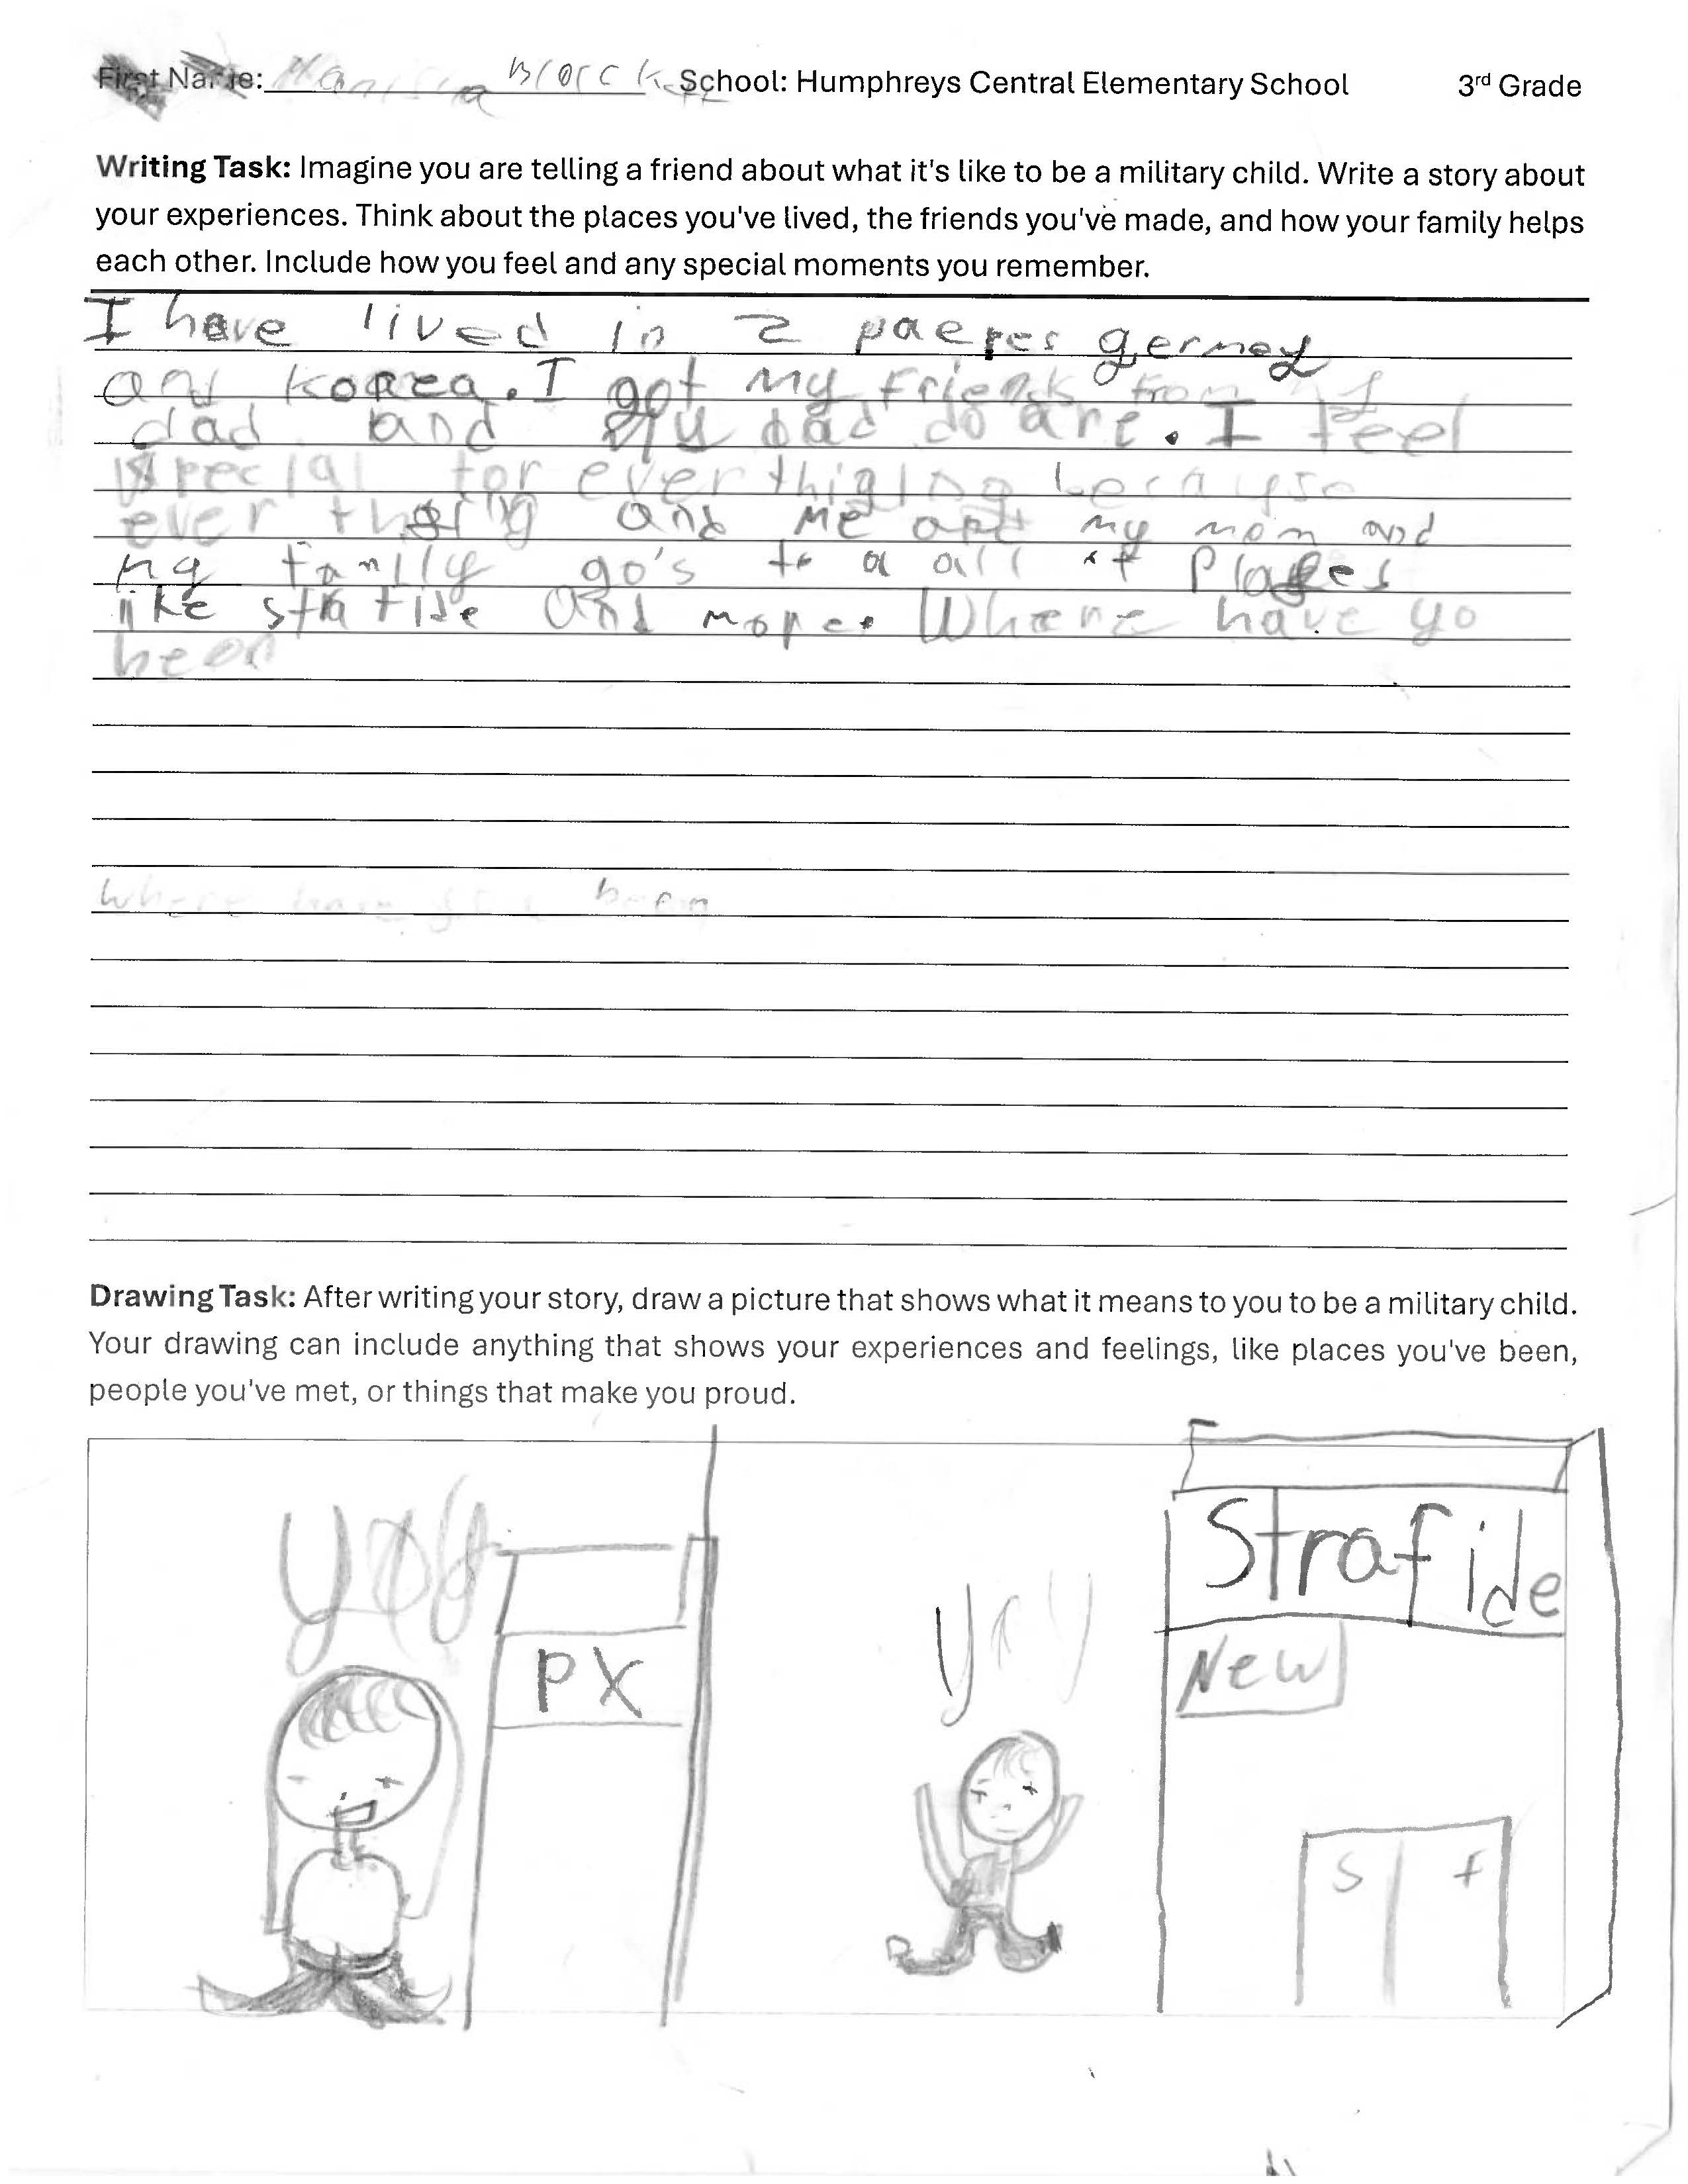 First Name: School: Humphreys Central Elementary School 3rd Grade
Writing Task: Imagine you are telling a friend about what it's like to be a military child. Write a story about
your experiences. Think about the places you've lived, the friends you've made, and how your family helps
each other. Include how you feel and any special moments you remember.
I have lived in 2 germey
and korea. I got my friends from my
dad and my dad do are. I feel
special for ever because
ever and me and my mom and
my family go's to a all of places
like strafide and more. Where have yo
been
where have you been
Drawing Task: After writing your story, draw a picture that shows what it means to you to be a military child.
Your drawing can include anything that shows your experiences and feelings, like places you've been,
people you've met, or things that make you proud.
yay
PX
yay
Strafide
New
S f